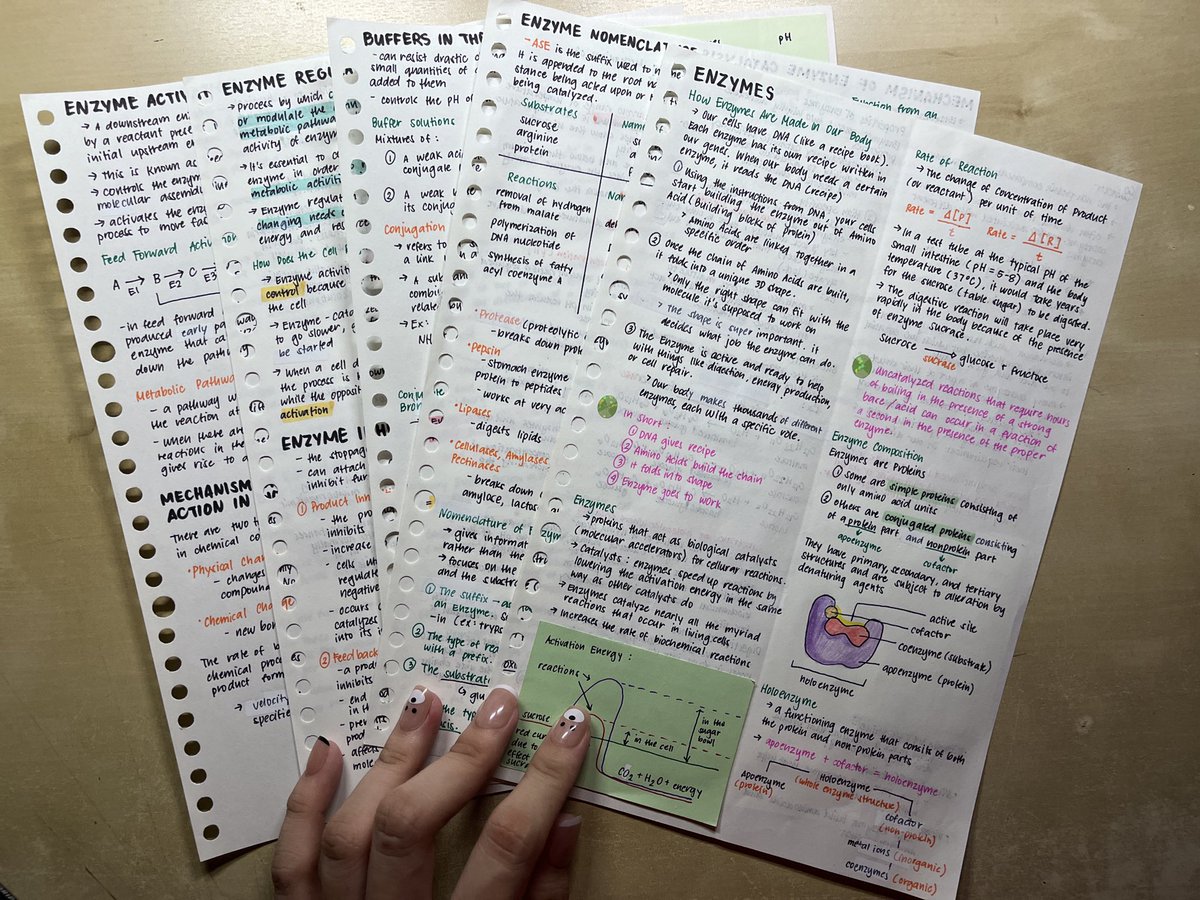 ENZYME ACTIV
→ A downstream en
by a reactant prese
initial upstream e
→ This is known as
→ controls the enzym
molecular assemb
→ activates the enzy
process to move fac
Feed Forward Activ
A → B → C →
E1 E2 E3
- in feed forward
produced early
enzyme that ca
down the path
Metabolic Pathwa
- a pathway w
the reaction at
- when there ar
reactions in the
gives rise to a
MECHANISM
ACTION IN
There are two t
in chemical co
• Physical chan
- changes
compoun
• Chemical change
- new bon
The rate of
chemical proc
product form
→ velocity
specifie
ENZYME REGU
→ process by which c
or modulate the
metabolic pathwa
activity of enzym
→ It's essential to c
enzyme in order
metabolic activiti
→ Enzyme regulat
changing needs
energy and res
How Does the Cell
→ Enzyme activit
control because
the cell
→ Enzyme - cata
to go slower,
be started
→ When a cell d
the process is
while the opposit
activation
ENZYME I
- the stoppag
- can attach
inhibit fur
① Product Inh
- the pro
inhibits
- increase
- cells wh
regulate
negative
- occurs
catalyzes
into its
② Feedback
- a produ
inhibits
- end
in th
- prev
prod
- affects
mole
BUFFERS IN THE
- can resist drastic c
small quantities of
added to them
- controls the pH of
Buffer solutions
Mixtures of :
① A weak aci
conjugate
② A weak
its conjug
Conjugation
→ refers to
a link
→ A sub
combi
relate
→ Ex:
NH
Conju
Bron
ENZYME NOMENCLATURE
-ASE is the suffix used to n
It is appended to the root
stance being acted upon or
being catalyzed.
Substrates
sucrose
arginine
protein
Nam
Reactions
removal of hydrogen
from malate
polymerization of
DNA nucleotide
synthesis of fatty
acyl coenzyme A
• Protease (proteolytic
- breaks down prot
• Pepsin
- stomach enzyme
protein to peptides
- works at very ac
• Lipases
- digests lipids
• Cellulases, Amylases
Pectinases
- breaks down
amyloce, lactos
Nomenclature of Enzym
→ gives informat
rather than the
→ focuses on the
and the substra
① The suffix -as
an Enzyme.
-in (ex: tryps
② The type of rea
with a prefix.
③ The substrat
↳ glu
the typ
pH
ENZYMES
How Enzymes Are Made in Our Body
→ Our cells have DNA (like a recipe book).
Each enzyme has its own recipe written in
our genes. When our body needs a certain
enzyme, it reads the DNA (recipe)
① Using the instructions from DNA, your cells
start building the enzyme out of Amino
Acid (Building blocks of Protein)
→ Amino Acids are linked together in a
specific order
② Once the chain of Amino Acids are built,
it folds into a unique 3D shape.
→ Only the right shape can fit with the
molecule it's supposed to work on
→ The shape is super important. it
decides what job the enzyme can do.
③ The Enzyme is active and ready to help
with things like digestion, energy production,
or cell repair.
→ Our body makes thousands of different
enzymes, each with a specific role.
In Short :
① DNA gives recipe
② Amino Acids build the chain
③ It folds into shape
④ Enzyme goes to work
Enzymes
→ proteins that act as biological catalysts
(molecular accelerators) for cellular reactions.
→ catalysts : enzymes speed up reactions by
lowering the activation energy in the same
way as other catalysts do
→ Enzymes catalyze nearly all the myriad
reactions that occur in living cells.
→ Increases the rate of biochemical reactions
Activation Energy :
reactions
sucrose
red cur
due to
effect
sucra
in the cell
in the
sugar
bowl
CO2 + H2O + energy
Rate of Reaction
→ The change of concentration of product
(or reactant) per unit of time
Rate = Δ[P] / t Rate = Δ[R] / t
→ In a test tube at the typical pH of the
small intestine (pH = 5-8) and the body
temperature (37°C), it would take years
for the sucrose (table sugar) to be digested.
→ The digestive reaction will take place very
rapidly in the body because of the presence
of enzyme sucrase.
Sucrose → glucose + fructose
sucrase
Uncatalyzed reactions that require hours
of boiling in the presence of a strong
base/acid can occur in a fraction of
a second in the presence of the proper
enzyme.
Enzyme Composition
Enzymes are Proteins
① Some are simple proteins consisting of
only amino acid units
② others are conjugated proteins consisting
of a protein part and nonprotein part
apoenzyme cofactor
They have primary, secondary, and tertiary
structures and are subject to alteration by
denaturing agents
active site
cofactor
coenzyme (substrate)
apoenzyme (protein)
holoenzyme
Holoenzyme
→ a functioning enzyme that consits of both
the protein and non-protein parts
→ apoenzyme + cofactor = holoenzyme
Holoenzyme
(whole enzyme structure)
Apoenzyme
(protein)
cofactor
(non-protein)
metal ions (inorganic)
coenzymes (organic)